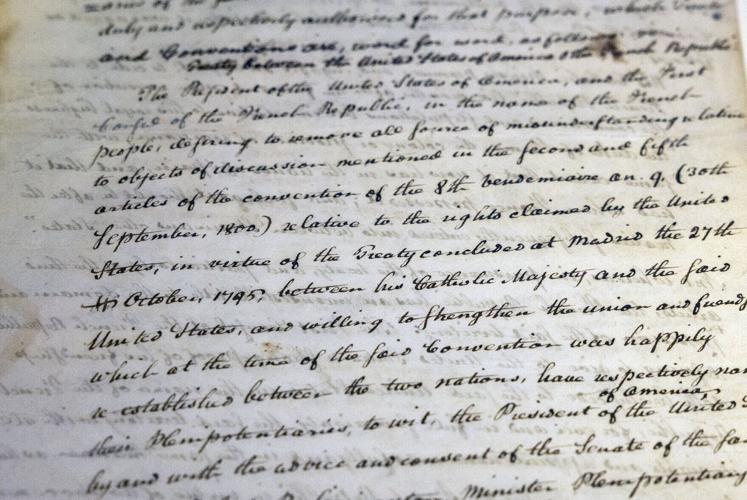 duly and respectively authorised for that purpose, which Treaty
and Conventions are, word for word, as follows:
Treaty between the United States of America & the French Republic
The President of the United States of America, and the First
Consul of the French Republic, in the name of the French
people, desiring to remove all source of misunderstanding relative
to objects of discussion mentioned in the second and fifth
articles of the convention of the 8th vendemiaire an. 9. (30th
September, 1800.) relative to the rights claimed by the United
States, in virtue of the Treaty concluded at Madrid the 27th
October, 1795, between his Catholic Majesty and the said
United States, and willing to strengthen the union and friends
which at the time of the said Convention was happily
re-established between the two nations, have respectively nam
of America,
their Plenipotentiaries, to wit, the President of the United S
by and with the advice and consent of the Senate of the said
Minister Plenipotentiary